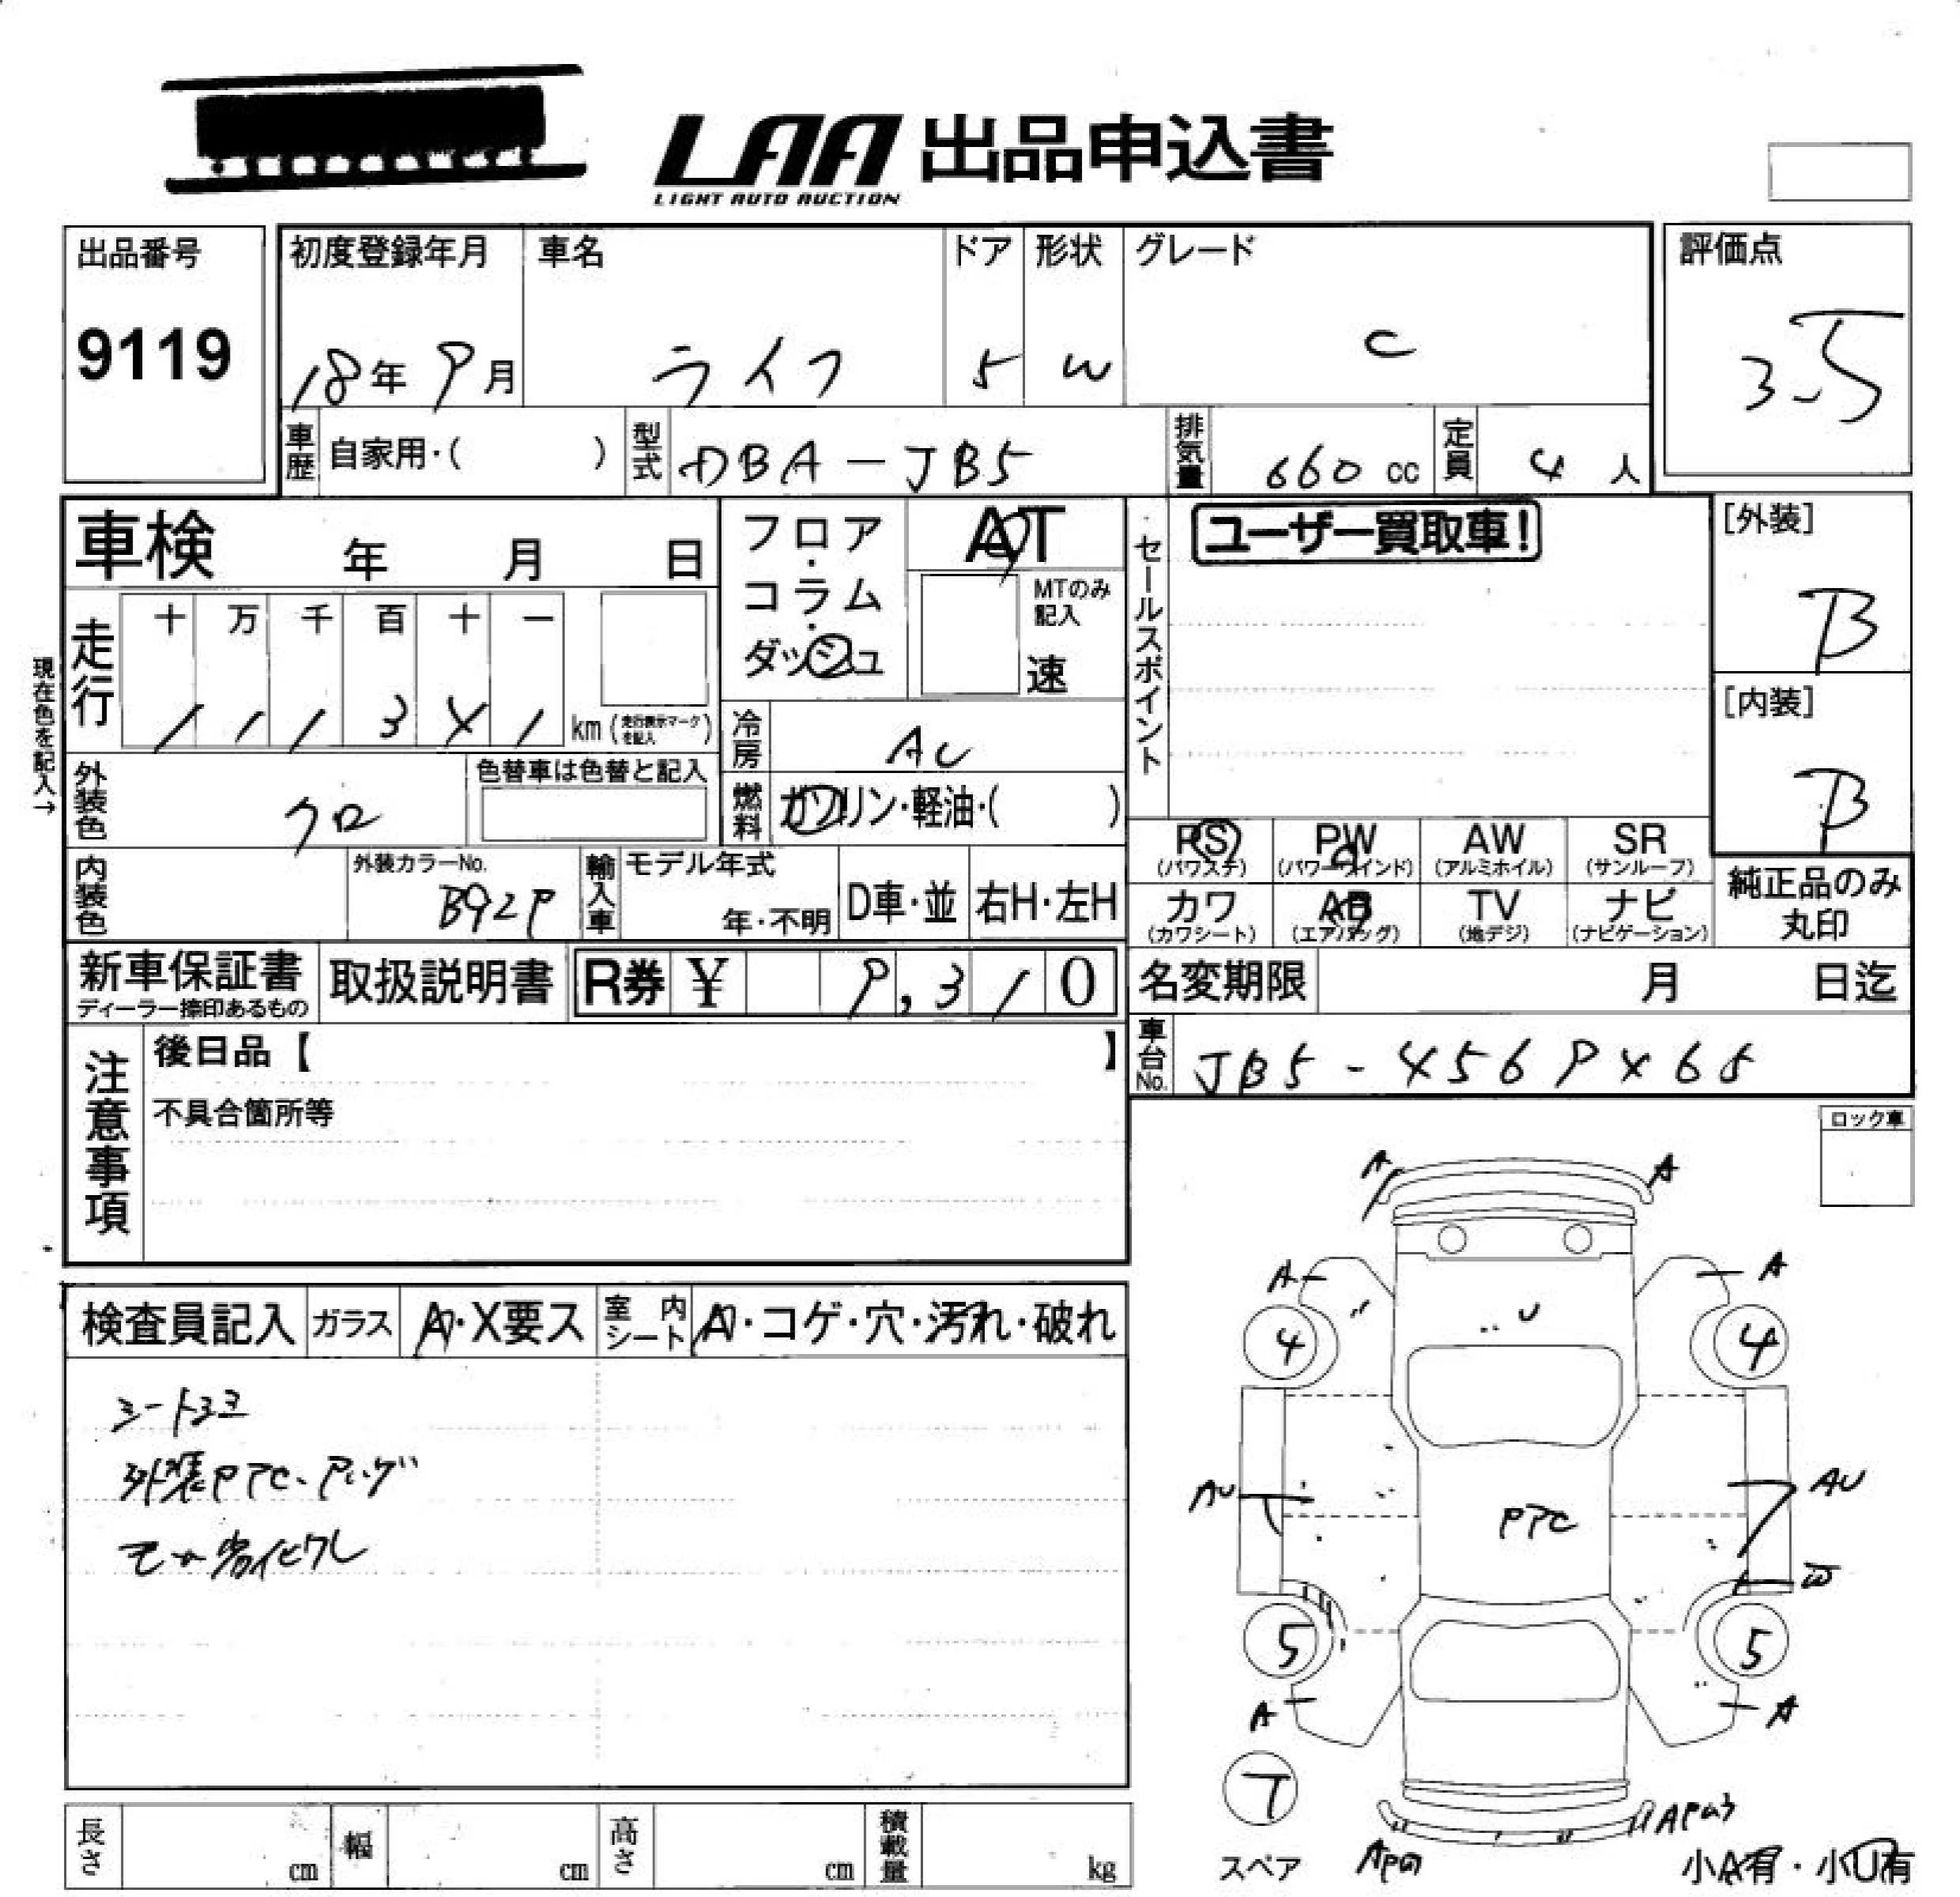 LAA 出品申込書
LIGHT AUTO AUCTION
出品番号
9119
初度登録年月
18年 9月
車名
ライフ
ドア
5
形状
W
グレード
C
評価点
3.5
車歴 自家用・( )
型式 DBA-JB5
排気量 660 cc
定員 4 人
車検 年 月 日
フロア・コラム・ダッシュ
AT
MTのみ記入
速
セールスポイント
ユーザー買取車!
[外装]
B
[内装]
B
現在色を記入→
走行
十 万 千 百 十 一
1 1 1 3 4 1 km (走行表示マークを記入)
冷房 AC
燃料 ガソリン・軽油・( )
外装色 クロ
色替車は色替と記入
内装色
外装カラーNo.
B92P
輸入車
モデル年式
年・不明
D車・並
右H・左H
PS
(パワステ)
PW
(パワーウインド)
AW
(アルミホイル)
SR
(サンルーフ)
カワ
(カワシート)
AB
(エアバッグ)
TV
(地デジ)
ナビ
(ナビゲーション)
純正品のみ
丸印
新車保証書
ディーラー捺印あるもの
取扱説明書
R券 ¥ 9,310
名変期限 月 日迄
注意事項
後日品【 】
不具合箇所等
車台No. JB5-4569468
ロック車
検査員記入
ガラス A・X要ス
室内シート A・コゲ・穴・汚れ・破れ
シートヨゴレ
外装PTC、
モール劣化ワレ
A A
A A
U
4 4
AU AU
PTC
W
5 5
A A
T
スペア
小A有・小U有
長さ cm
幅 cm
高さ cm
積載量 kg